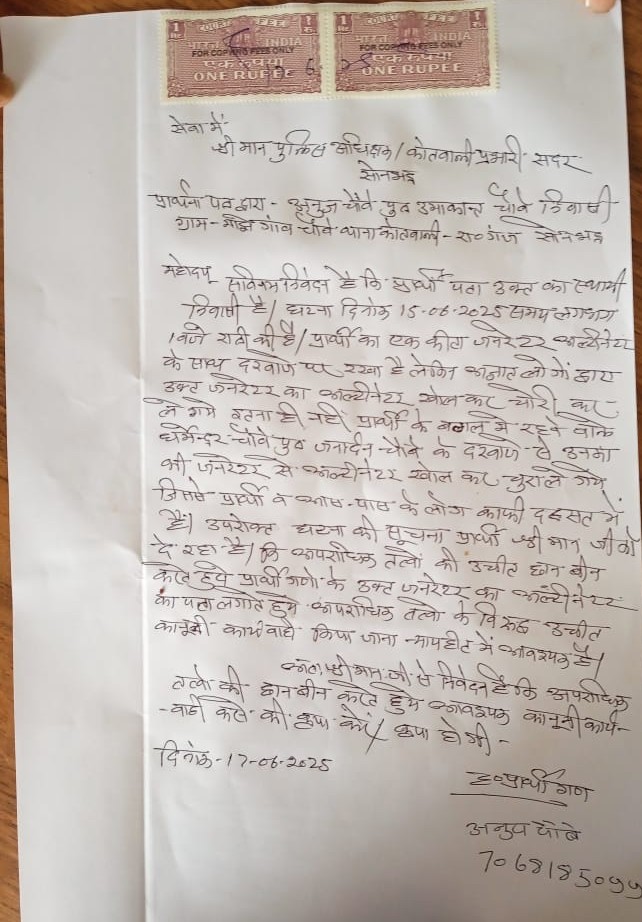 1 Re COURT FEE 1 रु.
1 Re COURT FEE 1 रु.
भारत INDIA
भारत INDIA
FOR COPYING FEES ONLY
FOR COPYING FEES ONLY
एक रूपया
एक रूपया
ONE RUPEE
ONE RUPEE
सेवा में
श्री मान पुलिस अधिक्षक / कोतवाली प्रभारी सदर
सोनभद्र
प्रार्थना पत्र द्वारा - अनुज चौबे पुत्र उमाकान्त चौबे निवासी
ग्राम - गांव चौबे थाना कोतवाली - रा० गंज सोनभद्र
महोदय सविनय निवेदन है कि प्रार्थी पता उक्त का स्थायी
निवासी है / घटना दिनांक 15-06-2025 समय लगभग
1 बजे रात्री की है / प्रार्थी का एक जनरेटर अल्टीनेटर
के साथ दरवाजे पर रखा है लेकिन अज्ञात लोगों द्वारा
उक्त जनरेटर का अल्टीनेटर खोल कर चोरी कर
ले गये इतना ही नहीं प्रार्थी के बगल में रहने वाले
धर्मेन्दर चौबे पुत्र जनार्दन चौबे के दरवाजे से उनका
भी जनरेटर से अल्टीनेटर खोल कर चुरा ले गये
जिससे प्रार्थी व आस-पास के लोग काफी दहसत में
हैं / उपरोक्त घटना की सूचना प्रार्थी श्री मान जी को
दे रहा है / कि अपराधिक तत्वों की उचीत छान बीन
करते हुये प्रार्थी गणो के उक्त जनरेटर का अल्टीनेटर
का पता लगाते हुये अपराधिक तत्वो के विरूद्ध उचीत
कानूनी कार्यवाही किया जाना न्यायहीत में आवश्यक है /
अतः श्री मान जी से निवेदन है कि अपराधिक
तत्वो की छान बीन करते हुये आवश्यक कानूनी कार्य-
-वाही करने की कृपा करें / कृपा होगी -
दिनांक - 17-06-2025
ह० प्रार्थी गण
अनुप चौबे
7068185099